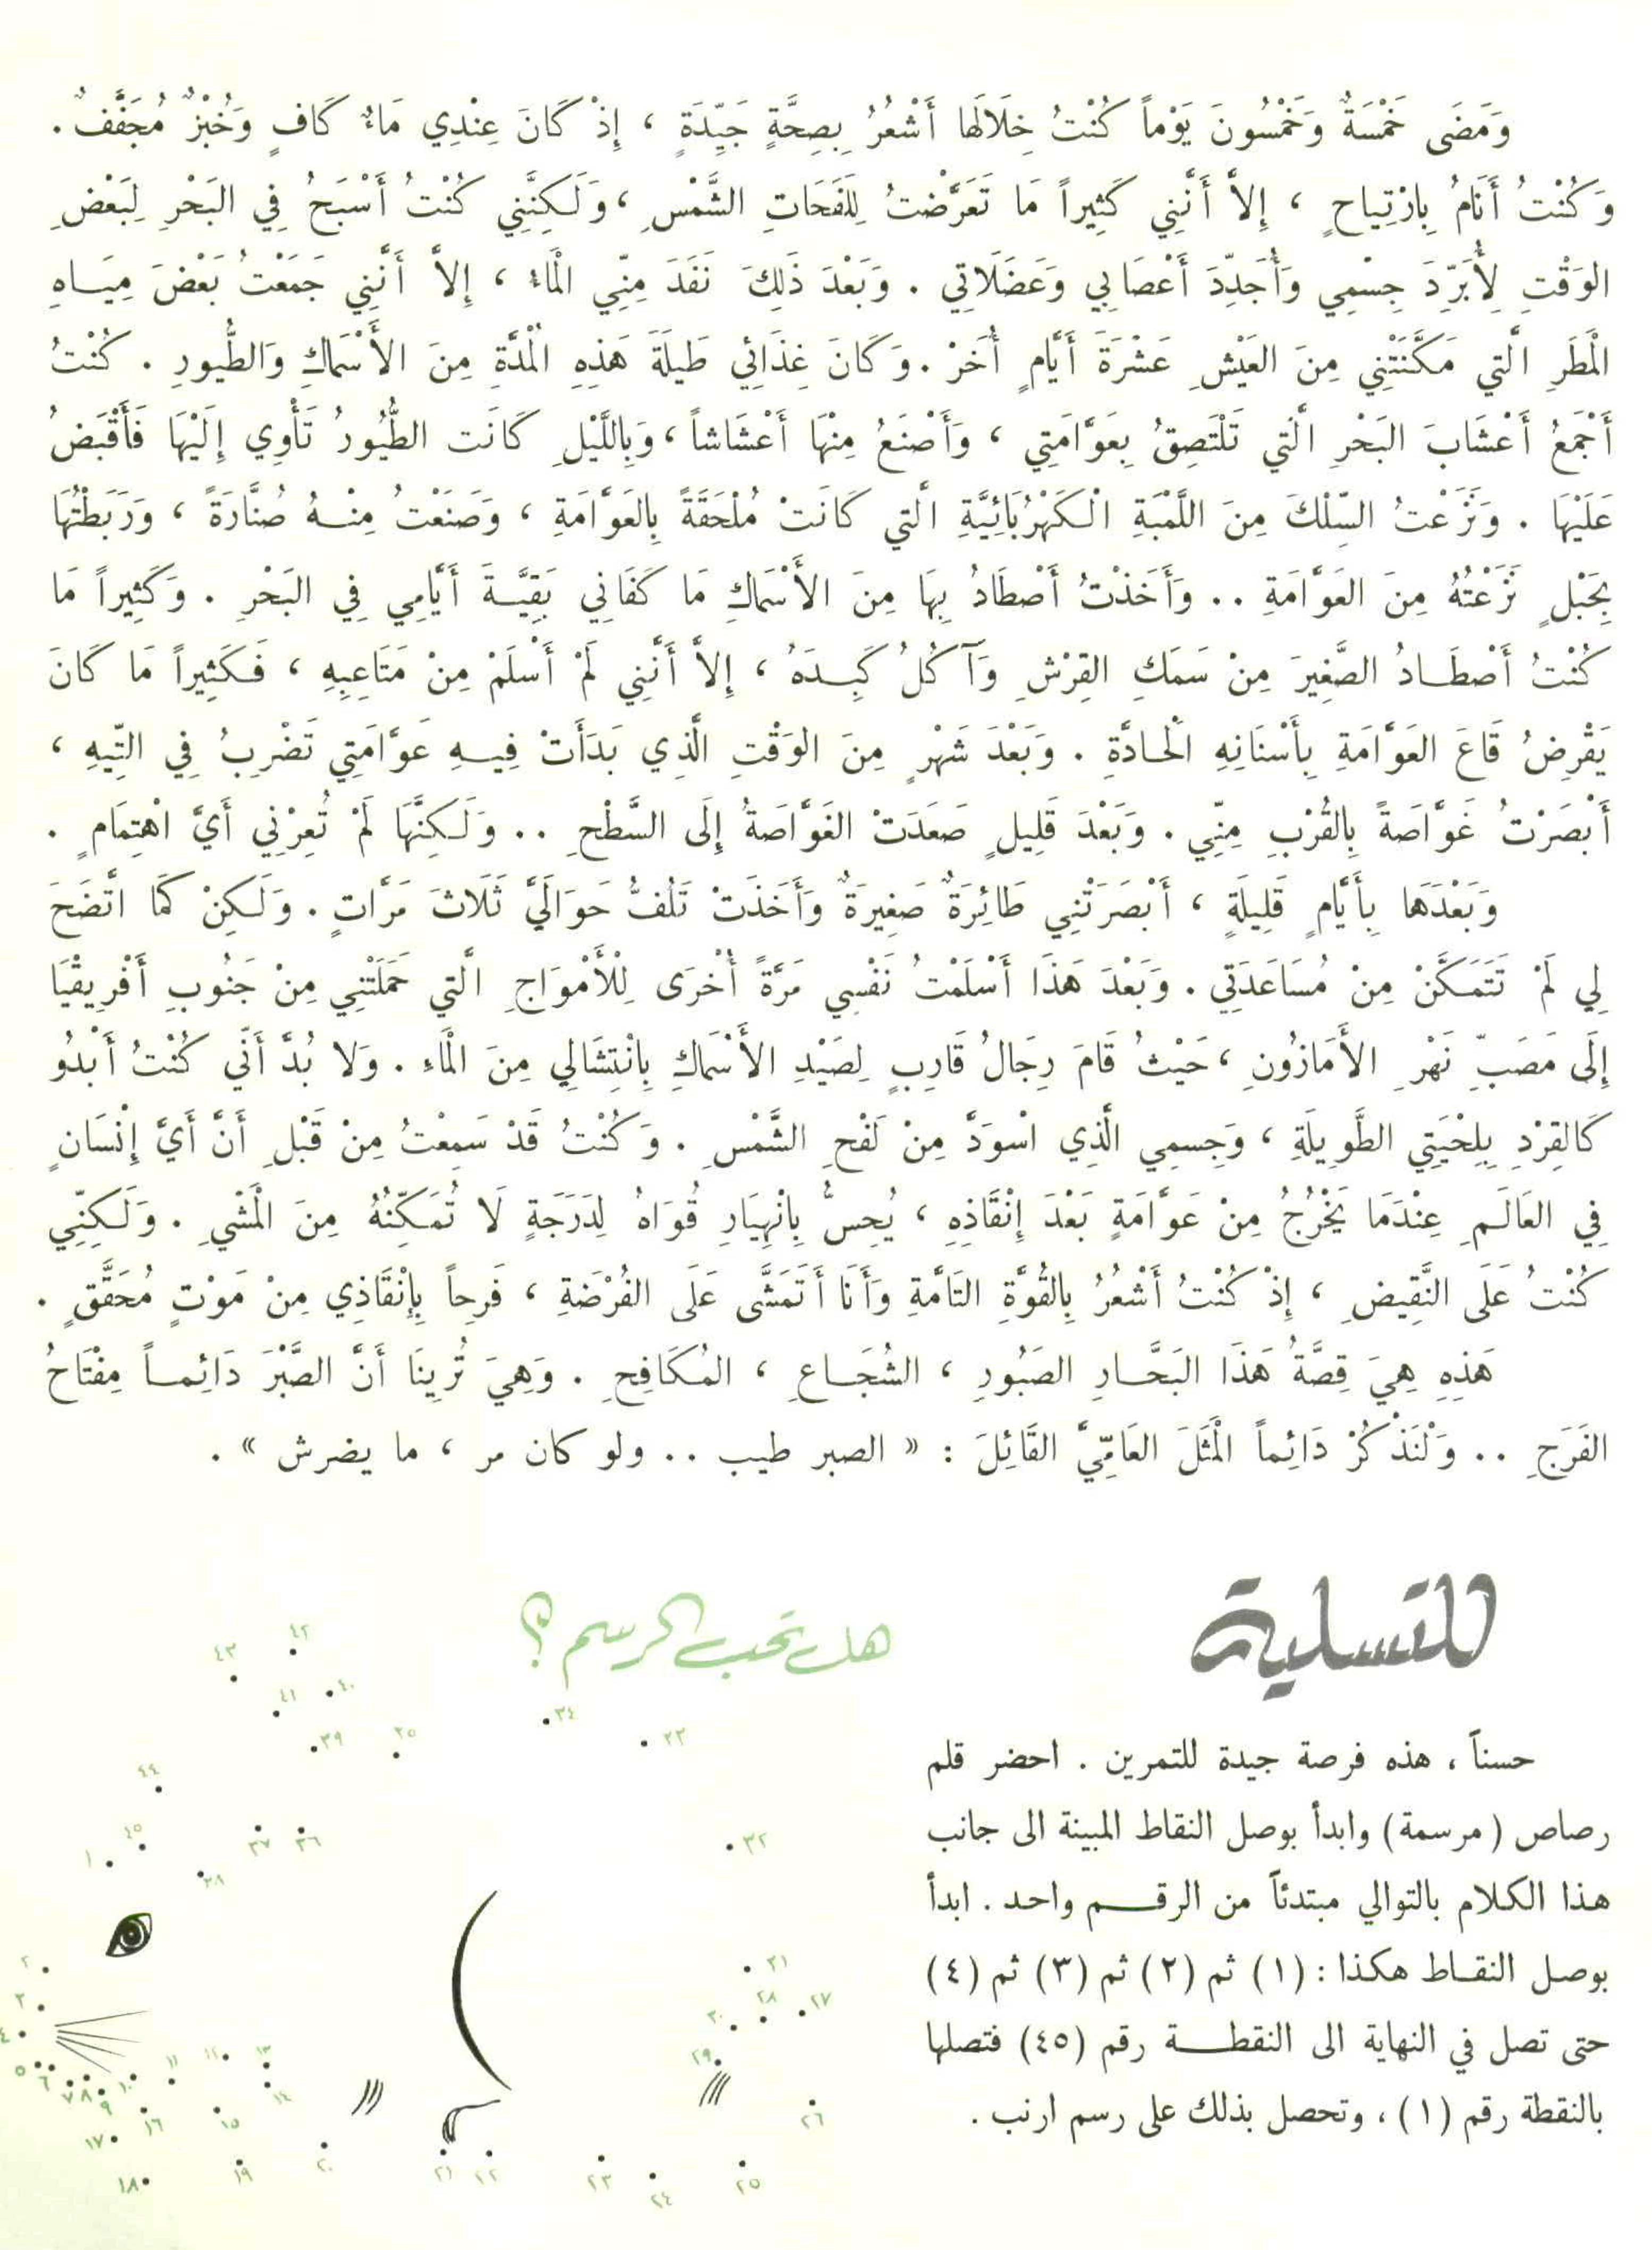 وَمَضَى خَمْسَةٌ وَخَمْسُونَ يَوْماً كُنْتُ خِلَالَهَا أَشْعُرُ بِصِحَّةٍ جَيِّدَةٍ ، إِذْ كَانَ عِنْدِي مَاءٌ كَافٍ وَخُبْزٌ مُجَفَّفٌ .
وَكُنْتُ أَنَامُ بِارْتِيَاحٍ ، إِلاَّ أَنَّنِي كَثِيراً مَا تَعَرَّضْتُ لِلَفَحَاتِ الشَّمْسِ ، وَلَكِنَّنِي كُنْتُ أَسْبَحُ فِي البَحْرِ لِبَعْضِ
الوَقْتِ لِأُبَرِّدَ جِسْمِي وَأُجَدِّدَ أَعْصَابِي وَعَضَلَاتِي . وَبَعْدَ ذَلِكَ نَفَدَ مِنِّي الْمَاءُ ، إِلاَّ أَنَّنِي جَمَعْتُ بَعْضَ مِيَاهِ
الْمَطَرِ الَّتِي مَكَّنَتْنِي مِنَ العَيْشِ عَشْرَةَ أَيَّامٍ أُخَرْ . وَكَانَ غِذَائِي طَيلَةَ هَذِهِ الْمُدَّةِ مِنَ الأَسْمَاكِ وَالطُّيورِ . كُنْتُ
أَجْمَعُ أَعْشَابَ البَحْرِ الَّتِي تَلْتَصِقُ بِعَوَّامَتِي ، وَأَصْنَعُ مِنْهَا أَعْشَاشاً ، وَبِاللَّيْلِ كَانَت الطُّيُورُ تَأْوِي إِلَيْهَا فَأَقْبَضُ
عَلَيْهَا . وَنَزَعْتُ السِّلْكَ مِنَ اللَّمْبَةِ الْكَهْرُبَائِيَّةِ الَّتِي كَانَتْ مُلْحَقَةً بِالعَوَّامَةِ ، وَصَنَعْتُ مِنْهُ صُنَّارَةً ، وَرَبَطْتُهَا
بِحَبْلٍ نَزَعْتُهُ مِنَ العَوَّامَةِ .. وَأَخَذْتُ أَصْطَادُ بِهَا مِنَ الأَسْمَاكِ مَا كَفَانِي بَقِيَّةَ أَيَّامِي فِي البَحْرِ . وَكَثِيراً مَا
كُنْتُ أَصْطَادُ الصَّغِيرَ مِنْ سَمَكِ القِرْشِ وَآكُلُ كَبِدَهُ ، إِلاَّ أَنَّنِي لَمْ أَسْلَمْ مِنْ مَتَاعِبِهِ ، فَكَثِيراً مَا كَانَ
يَقْرِضُ قَاعَ العَوَّامَةِ بِأَسْنَانِهِ الْحَادَّةِ . وَبَعْدَ شَهْرٍ مِنَ الوَقْتِ الَّذِي بَدَأَتْ فِيهِ عَوَّامَتِي تَضْرِبُ فِي التِّيهِ ،
أَبْصَرْتُ غَوَّاصَةً بِالقُرْبِ مِنِّي . وَبَعْدَ قَلِيلٍ صَعَدَتْ الغَوَّاصَةُ إِلَى السَّطْحِ .. وَلَكِنَّهَا لَمْ تُعِرْنِي أَيَّ اهْتِمَامٍ .
وَبَعْدَهَا بِأَيَّامٍ قَلِيلَةٍ ، أَبْصَرَتْنِي طَائِرَةٌ صَغِيرَةٌ وَأَخَذَتْ تَلُفُّ حَوَالَيَّ ثَلَاثَ مَرَّاتٍ . وَلَكِنْ كَمَا اتَّضَحَ
لِي لَمْ تَتَمَكَّنْ مِنْ مُسَاعَدَتِي . وَبَعْدَ هَذَا أَسْلَمْتُ نَفْسِي مَرَّةً أُخْرَى لِلْأَمْوَاجِ الَّتِي حَمَلَتْنِي مِنْ جَنُوبِ أَفْرِيقْيَا
إِلَى مَصَبِّ نَهْرِ الأَمَازُونِ ، حَيْثُ قَامَ رِجَالُ قَارِبٍ لِصَيْدِ الأَسْمَاكِ بِانْتِشَالِي مِنَ الْمَاءِ . وَلا بُدَّ أَنَّي كُنْتُ أَبْدُو
كَالقِرْدِ بِلِحْيَتِي الطَّوِيلَةِ ، وَجِسمِي الَّذِي اسْوَدَّ مِنْ لَفْحِ الشَّمْسِ . وَكُنْتُ قَدْ سَمِعْتُ مِنْ قَبْلِ أَنَّ أَيَّ إِنْسَانٍ
فِي العَالَمِ عِنْدَمَا يَخْرُجُ مِنْ عَوَّامَةٍ بَعْدَ إِنْقَاذِهِ ، يُحِسُّ بِانْهِيَارِ قُوَاهُ لِدَرَجَةٍ لَا تُمَكِّنُهُ مِنَ الْمَشْيِ . وَلَكِنِّي
كُنْتُ عَلَى النَّقِيضِ ، إِذْ كُنْتُ أَشْعُرُ بِالقُوَّةِ التَامَّةِ وَأَنَا أَتَمَشَّى عَلَى الفُرْضَةِ ، فَرِحاً بِإِنْقَاذِي مِنْ مَوْتٍ مُحَقَّقٍ .
هَذِهِ هِيَ قِصَّةُ هَذَا البَحَّارِ الصَبُورِ ، الشُجَاعِ ، المُكَافِحِ . وَهِيَ تُرِينَا أَنَّ الصَّبْرَ دَائِماً مِفْتَاحُ
الفَرَجِ .. وَلْنَذْكُرْ دَائِماً الْمَثَلَ العَامِّيَّ القَائِلَ : « الصبر طيب .. ولو كان مر ، ما يضرش » .
للتسلية
هل تحب الرسم ؟
حسناً ، هذه فرصة جيدة للتمرين . احضر قلم
رصاص (مرسمة) وابدأ بوصل النقاط المبينة الى جانب
هذا الكلام بالتوالي مبتدئاً من الرقم واحد . ابدأ
بوصل النقاط هكذا : (١) ثم (٢) ثم (٣) ثم (٤)
حتى تصل في النهاية الى النقطة رقم (٤٥) فتصلها
بالنقطة رقم (١) ، وتحصل بذلك على رسم ارنب .
٤٢
٤٣
٤٠
٤١
٣٤
٣٣
٣٩
٣٥
٤٤
٤٥
٣٧
٣٦
٣٢
١
٣٨
٢
٣١
٣
٢٨
٢٧
٣٠
٤
١١
١٢
١٣
٢٩
٥
٦
٧
٨
٩
١٠
١٤
١٦
١٥
٢٦
١٧
١٨
١٩
٢٠
٢١
٢٢
٢٣
٢٤
٢٥